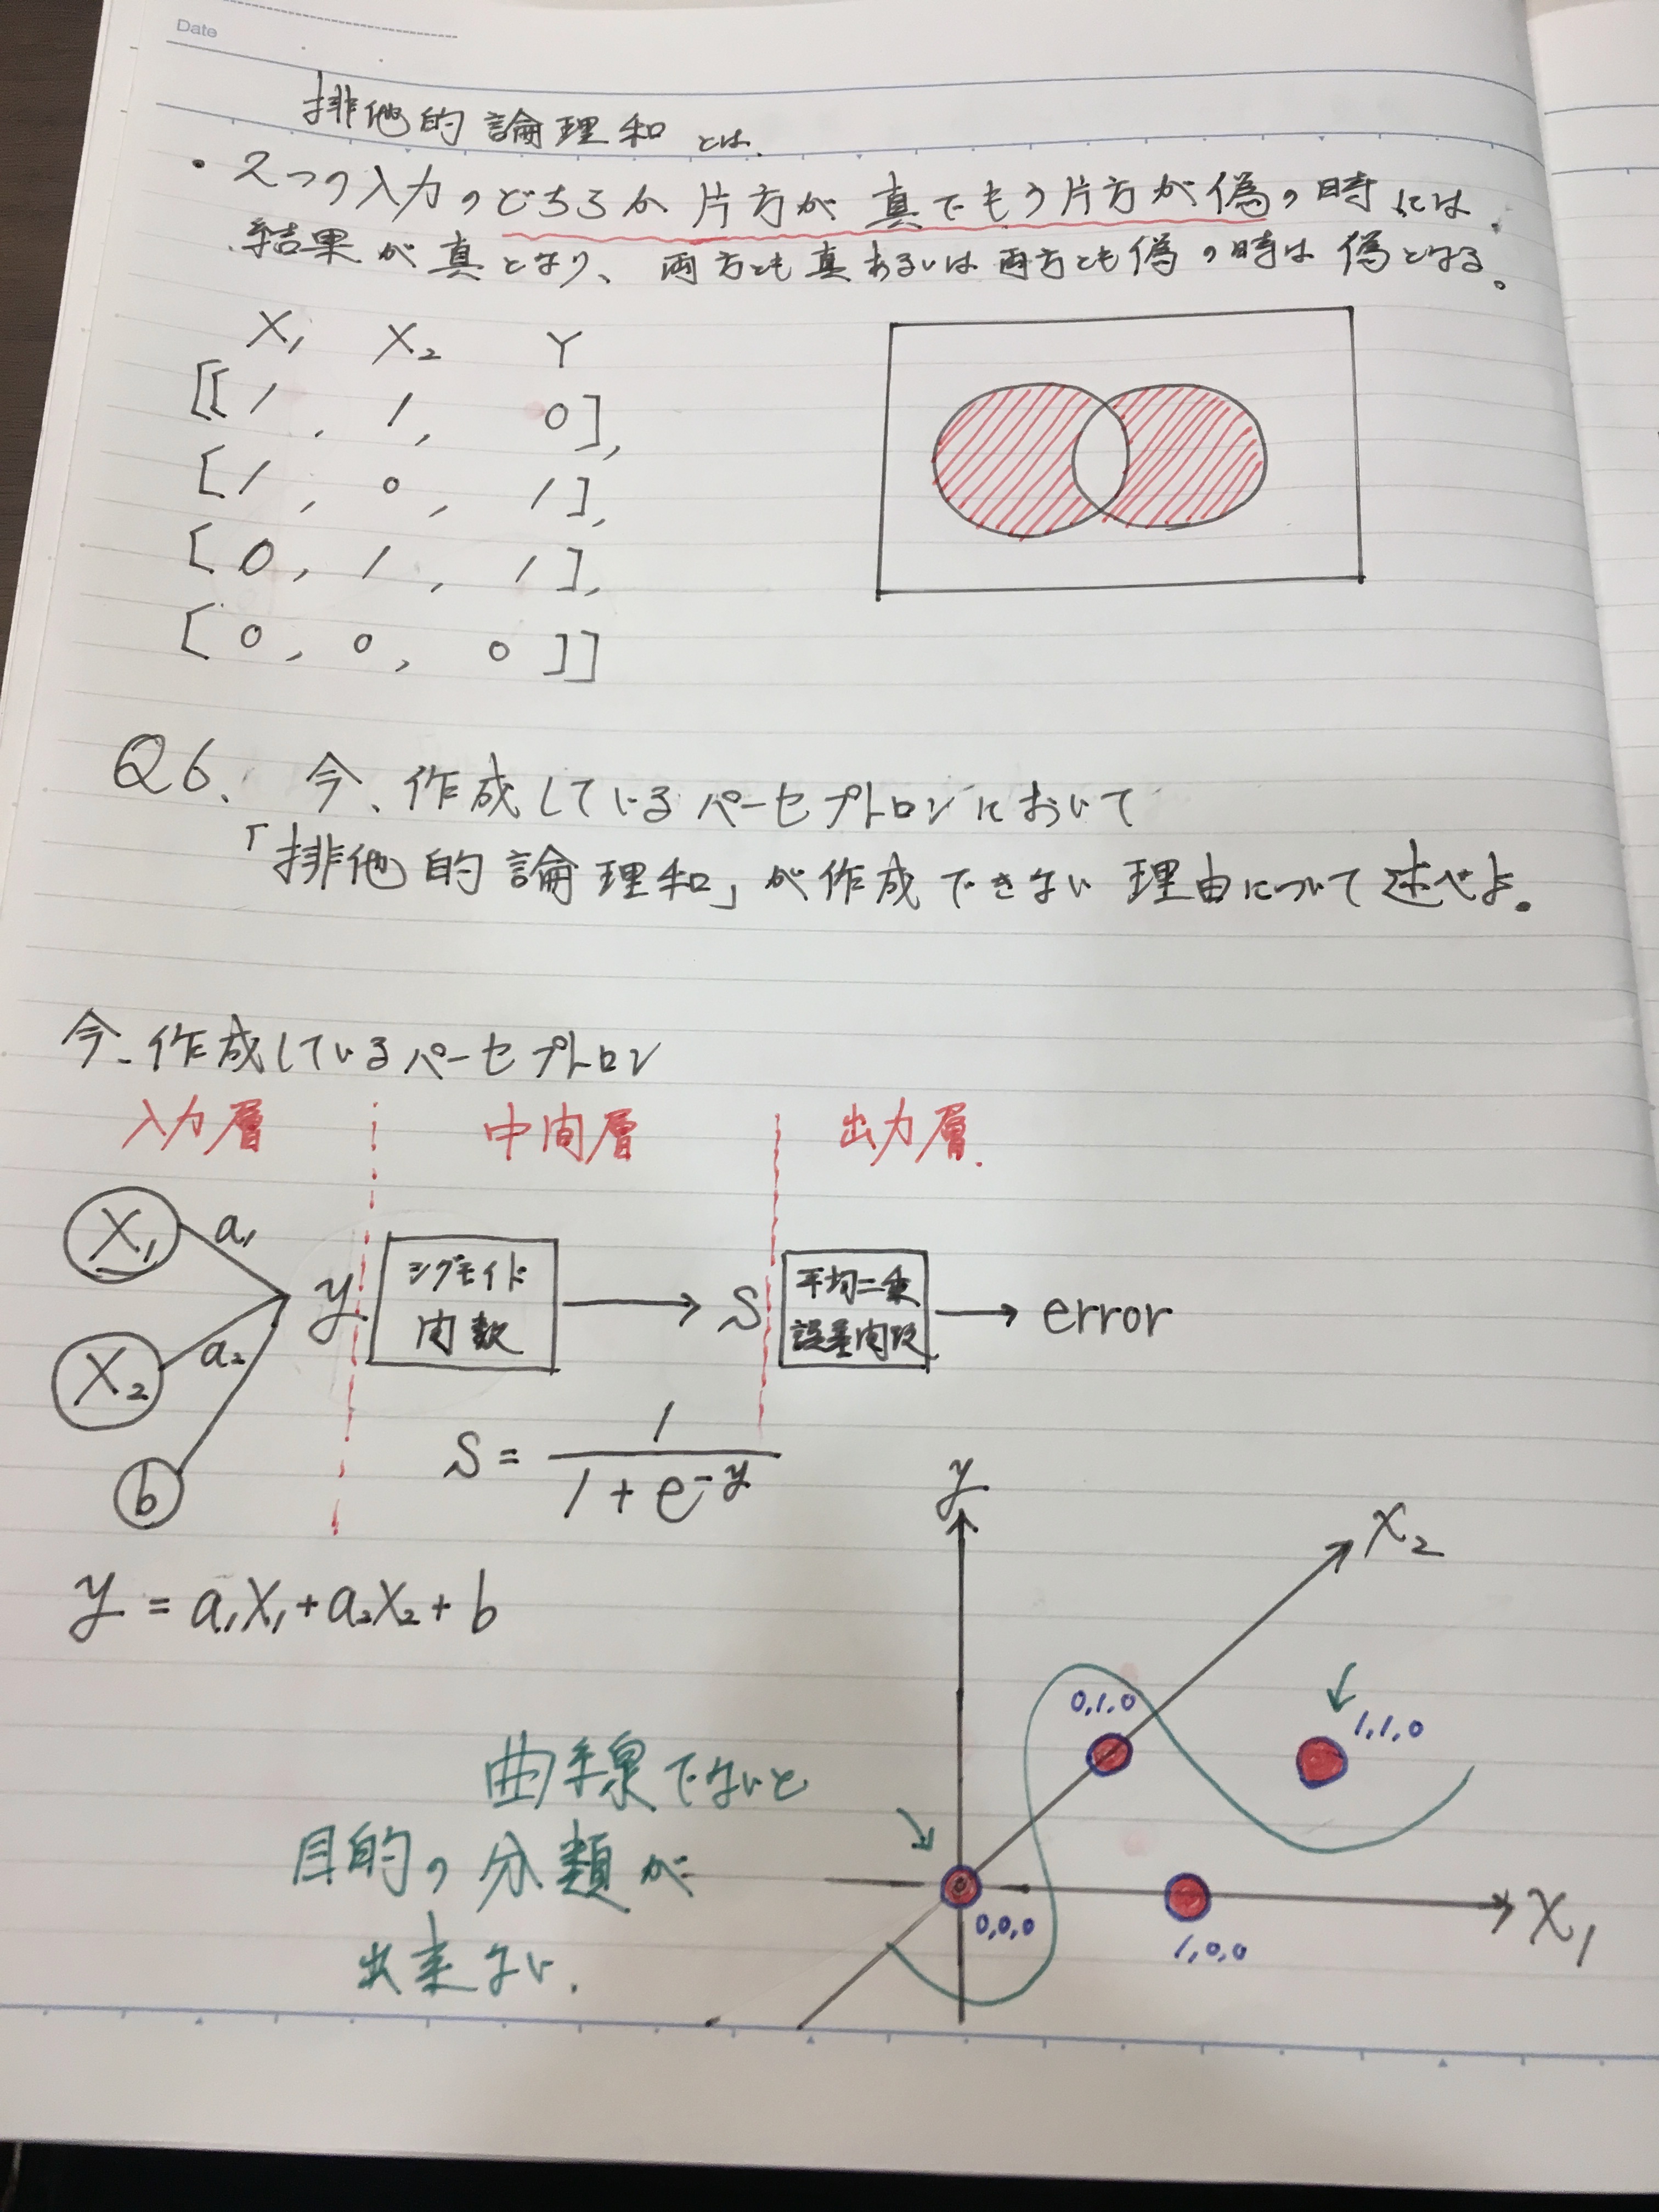 Date
排他的論理和とは、
・2つの入力のどちらか片方が真でもう片方が偽の時には、
結果が真となり、両方とも真あるいは両方とも偽の時は偽となる。
X₁ X₂ Y
[[1, 1, 0],
[1, 0, 1],
[0, 1, 1],
[0, 0, 0]]
Q6. 今、作成しているパーセプトロンにおいて
「排他的論理和」が作成できない理由について述べよ。
今、作成しているパーセプトロン
入力層 中間層 出力層
X₁ a₁
X₂ a₂
b
y シグモイド関数 → S 平均二乗誤差関数 → error
S = 1 / (1 + e^-y)
y = a₁X₁ + a₂X₂ + b
y
X₂
X₁
0,1,0
1,1,0
0,0,0
1,0,0
曲線でないと
目的の分類が
出来ない.